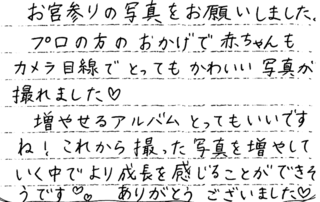 お宮参りの写真をお願いしました。
プロの方の おかげで 赤ちゃんも
カメラ目線で とっても かわいい 写真が
撮れました♡
増やせるアルバム とっても いいです
ね！これから 撮った 写真を 増やして
いく中で より成長を 感じることが できそ
うです♡。 ありがとう ございました♡